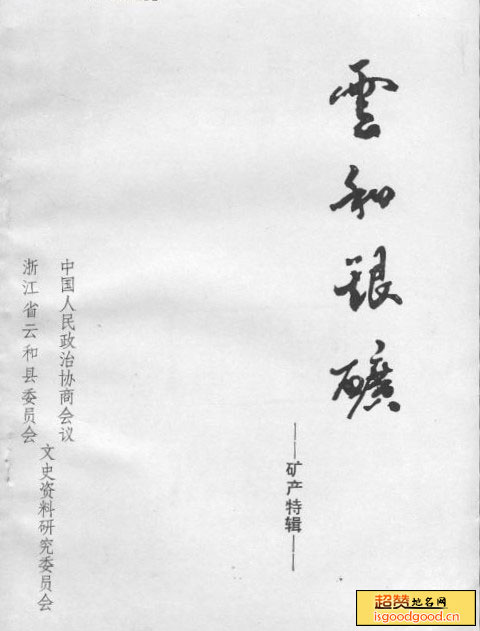 雲和銀礦
——矿产特辑——
中国人民政治协商会议
浙江省云和县委员会
文史资料研究委员会
超赞地名网
isgoodgood.cn